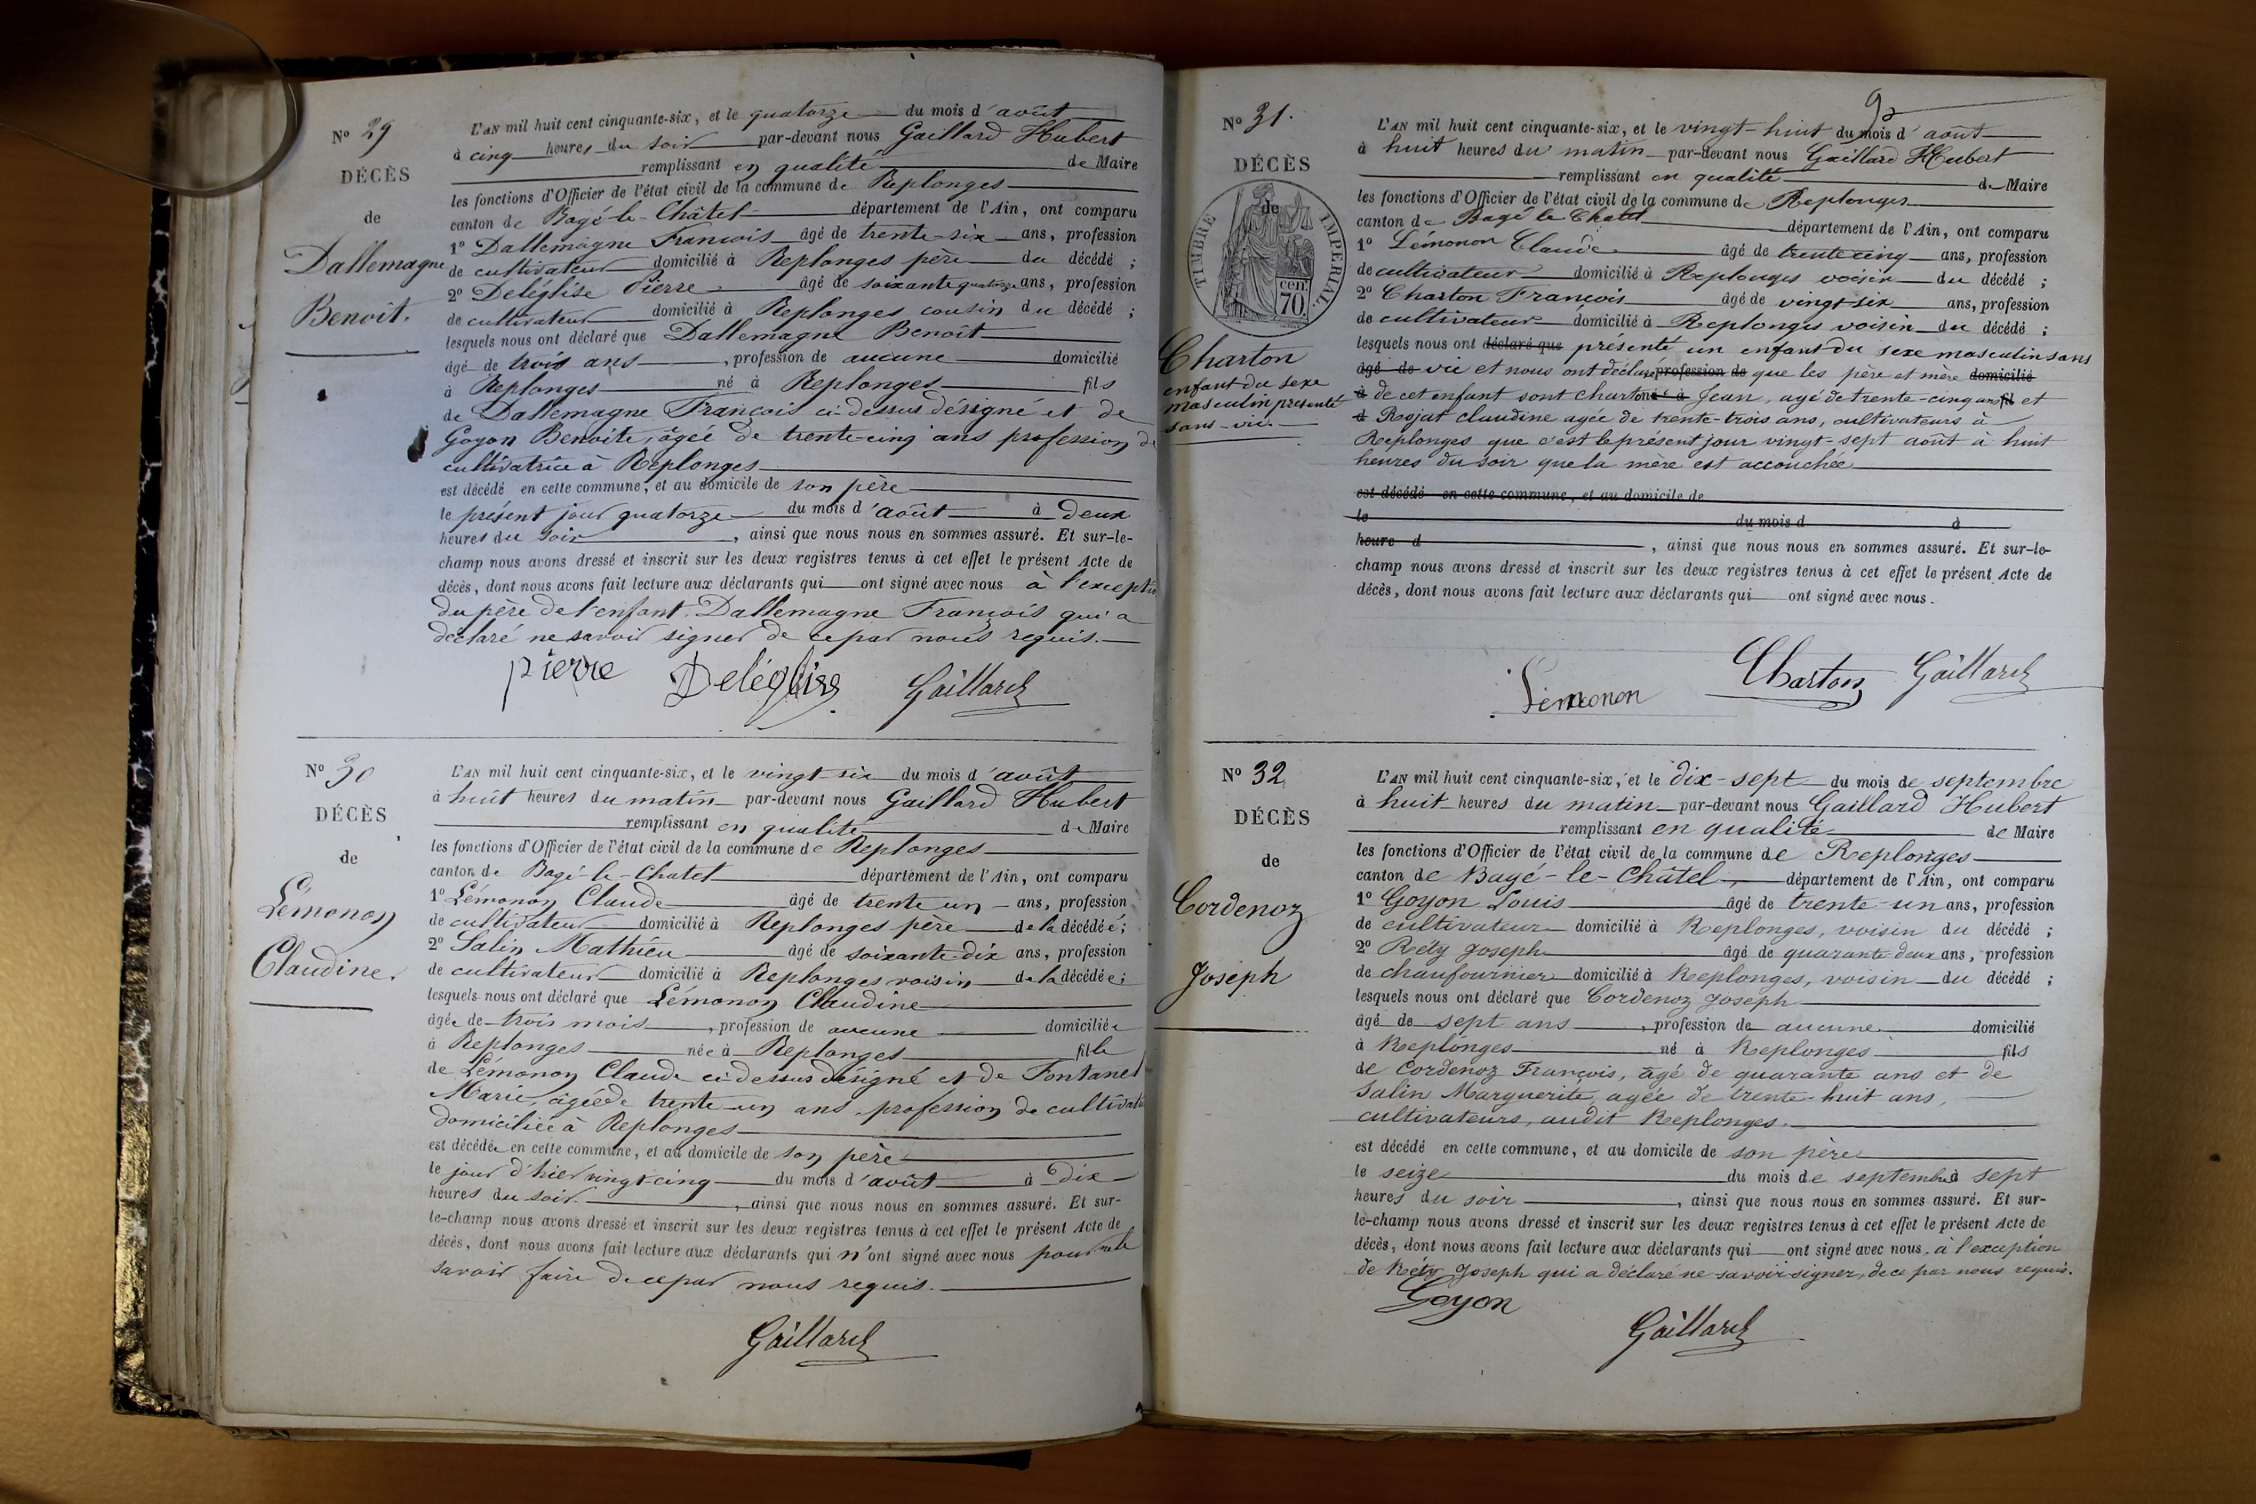 Nº 29
DÉCÈS
de
Dallemagne
Benoit.
L'AN mil huit cent cinquante-six, et le quatorze du mois d'août
à cinq heures du soir par-devant nous Gaillard Hubert
remplissant en qualité de Maire
les fonctions d'Officier de l'état civil de la commune de Replonges
canton de Bagé-le-Châtel département de l'Ain, ont comparu
1º Dallemagne François âgé de trente-six ans, profession
de cultivateur domicilié à Replonges père du décédé ;
2º Deléglise Pierre âgé de soixante quatorze ans, profession
de cultivateur domicilié à Replonges cousin du décédé ;
lesquels nous ont déclaré que Dallemagne Benoit
âgé de trois ans, profession de aucune domicilié
à Replonges né à Replonges fils
de Dallemagne François ci-dessus désigné et de
Goyon Benoite, âgée de trente-cinq ans profession de
cultivatrice à Replonges
est décédé en cette commune, et au domicile de son père
le présent jour quatorze du mois d'août à deux
heures du soir, ainsi que nous nous en sommes assuré. Et sur-le-
champ nous avons dressé et inscrit sur les deux registres tenus à cet effet le présent Acte de
décès, dont nous avons fait lecture aux déclarants qui ont signé avec nous à l'exception
du père de l'enfant Dallemagne François qui a
déclaré ne savoir signer de ce par nous requis.
pierre Deléglise Gaillard
Nº 30
DÉCÈS
de
Lémonon
Claudine.
L'AN mil huit cent cinquante-six, et le vingt six du mois d'août
à huit heures du matin par-devant nous Gaillard Hubert
remplissant en qualité de Maire
les fonctions d'Officier de l'état civil de la commune de Replonges
canton de Bagé-le-Chatel département de l'Ain, ont comparu
1º Lémonon Claude âgé de trente un ans, profession
de cultivateur domicilié à Replonges père de la décédée ;
2º Salin Mathieu âgé de soixante dix ans, profession
de cultivateur domicilié à Replonges voisin de la décédée ;
lesquels nous ont déclaré que Lémonon Claudine
âgée de trois mois, profession de aucune domiciliée
à Replonges née à Replonges fille
de Lémonon Claude ci-dessus désigné et de Fontanel
Marie, âgée de trente-un ans profession de cultivatrice
domiciliée à Replonges
est décédée en cette commune, et au domicile de son père
le jour d'hier vingt-cinq du mois d'août à dix
heures du soir, ainsi que nous nous en sommes assuré. Et sur-
le-champ nous avons dressé et inscrit sur les deux registres tenus à cet effet le présent Acte de
décès, dont nous avons fait lecture aux déclarants qui n'ont signé avec nous pour ne le
savoir faire de ce par nous requis.
Gaillard
Nº 31.
DÉCÈS
de
TIMBRE IMPÉRIAL.
cen. 70.
Charton
enfant du sexe
masculin présenté
sans vie.
L'AN mil huit cent cinquante-six, et le vingt-huit du mois d'août
à huit heures du matin par-devant nous Gaillard Hubert
remplissant en qualité de Maire
les fonctions d'Officier de l'état civil de la commune de Replonges
canton de Bagé le Chatel département de l'Ain, ont comparu
1º Lémonon Claude âgé de trente cinq ans, profession
de cultivateur domicilié à Replonges voisin du décédé ;
2º Charton François âgé de vingt-six ans, profession
de cultivateur domicilié à Replonges voisin du décédé ;
lesquels nous ont déclaré que présenté un enfant du sexe masculin sans
âgé de vie et nous ont déclaré profession de que les père et mère domicilié
à de cet enfant sont charton né à Jean, agé de trente-cinq ans fil et
d Rojat claudine agée de trente-trois ans, cultivateurs à
Replonges que c'est le présent jour vingt-sept août à huit
heures du soir que la mère est accouchée
est décédé en cette commune, et au domicile de
le du mois d à
heure d, ainsi que nous nous en sommes assuré. Et sur-le-
champ nous avons dressé et inscrit sur les deux registres tenus à cet effet le présent Acte de
décès, dont nous avons fait lecture aux déclarants qui ont signé avec nous.
Lémonon Charton Gaillard
Nº 32
DÉCÈS
de
Cordenoz
Joseph
L'AN mil huit cent cinquante-six, et le dix-sept du mois de septembre
à huit heures du matin par-devant nous Gaillard Hubert
remplissant en qualité de Maire
les fonctions d'Officier de l'état civil de la commune de Replonges
canton de Bagé-le-Châtel, département de l'Ain, ont comparu
1º Goyon Louis âgé de trente-un ans, profession
de cultivateur domicilié à Replonges, voisin du décédé ;
2º Réty Joseph âgé de quarante-deux ans, profession
de chaufournier domicilié à Replonges, voisin du décédé ;
lesquels nous ont déclaré que Cordenoz Joseph
âgé de sept ans, profession de aucune domicilié
à Replonges né à Replonges fils
de Cordenoz François, âgé de quarante ans et de
Salin Marguerite, agée de trente-huit ans,
cultivateurs, audit Replonges.
est décédé en cette commune, et au domicile de son père
le seize du mois de septembre à sept
heures du soir, ainsi que nous nous en sommes assuré. Et sur-
le-champ nous avons dressé et inscrit sur les deux registres tenus à cet effet le présent Acte de
décès, dont nous avons fait lecture aux déclarants qui ont signé avec nous. à l'exception
de Réty Joseph qui a déclaré ne savoir signer, de ce par nous requis.
Goyon Gaillard